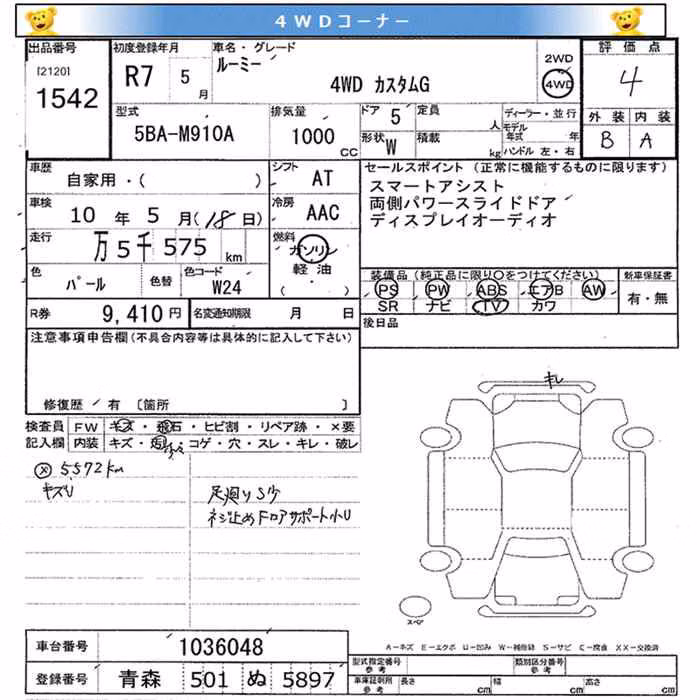 4WDコーナー
出品番号
[2120]
1542
初度登録年月
R7 5 月
車名・グレード
ルーミー
4WD カスタムG
2WD
4WD
評価点
4
外装 内装
B A
型式
5BA-M910A
排気量
1000 CC
ドア 5
定員 人
形状 W
積載 kg
ディーラー・並行
モデル年式 年
ハンドル 左・右
車歴
自家用・( )
シフト AT
車検 10 年 5 月(18 日)
冷房 AAC
走行 万 5千 575 km
燃料 ガソリン
軽油
( )
色 パール
色替
色コード W24
セールスポイント(正常に機能するものに限ります)
スマートアシスト
両側パワースライドドア
ディスプレイオーディオ
装備品(純正品に限り○をつけてください)
PS PW ABS エアB AW
SR ナビ TV カワ
新車保証書
有・無
R券 9,410 円
名変通知期限 月 日
後日品
注意事項申告欄(不具合内容等は具体的に記入して下さい)
修復歴 / 有 〔箇所 〕
検査員記入欄
FW キズ・飛石・ヒビ割・リペア跡・×要
内装 キズ・汚・コゲ・穴・スレ・キレ・破レ
5572km
キズU
足廻りS少
ネジ止めドロアサポート小U
キレ
スペア
A-キズ E-エクボ U-凹み W-補修跡 S-サビ C-腐食 XX-交換済
車台番号 1036048
登録番号 青森 501 ぬ 5897
型式指定番号 参考
類別区分番号 参考
車体証明所 参考 長さ cm 幅 cm 高さ cm